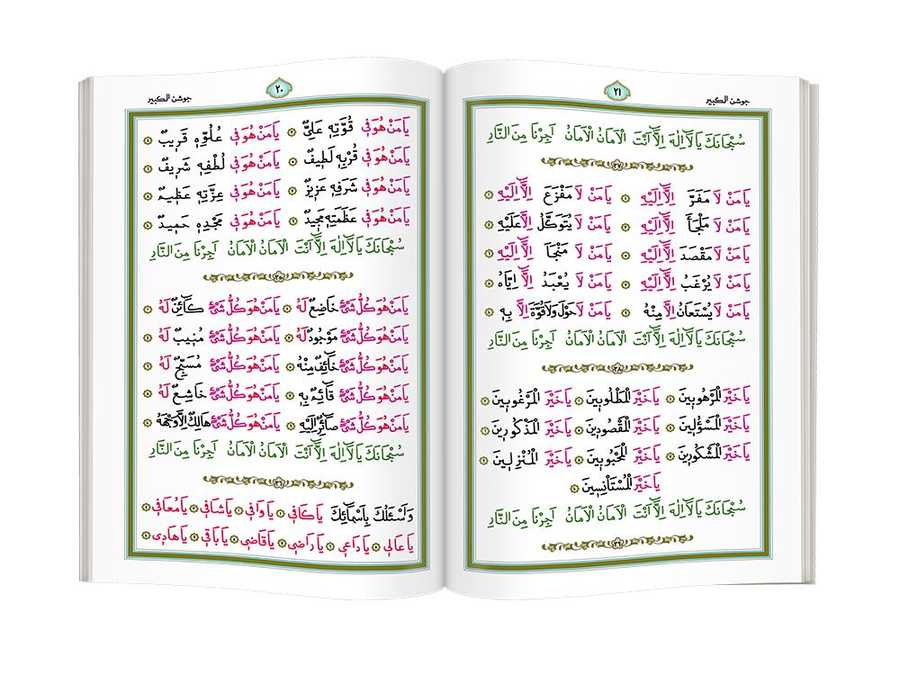 جوشن الكبير
٢٠
يَا مَنْ هُوَ فِي قُوَّتِهِ عَلِيٌّ ۞ يَا مَنْ هُوَ فِي عُلُوِّهِ قَرِيبٌ ۞
يَا مَنْ هُوَ فِي قُرْبِهِ لَطِيفٌ ۞ يَا مَنْ هُوَ فِي لُطْفِهِ شَرِيفٌ ۞
يَا مَنْ هُوَ فِي شَرَفِهِ عَزِيزٌ ۞ يَا مَنْ هُوَ فِي عِزَّتِهِ عَظِيمٌ ۞
يَا مَنْ هُوَ فِي عَظَمَتِهِ مَجِيدٌ ۞ يَا مَنْ هُوَ فِي مَجْدِهِ حَمِيدٌ ۞
سُبْحَانَكَ يَا لَا اِلٰهَ اِلَّا اَنْتَ الْاَمَانُ الْاَمَانُ اَجِرْنَا مِنَ النَّارِ
يَا مَنْ هُوَ كُلُّ شَيْءٍ خَاضِعٌ لَهُ ۞ يَا مَنْ هُوَ كُلُّ شَيْءٍ كَائِنٌ لَهُ ۞
يَا مَنْ هُوَ كُلُّ شَيْءٍ مَوْجُودٌ لَهُ ۞ يَا مَنْ هُوَ كُلُّ شَيْءٍ مُنِيبٌ لَهُ ۞
يَا مَنْ هُوَ كُلُّ شَيْءٍ خَائِفٌ مِنْهُ ۞ يَا مَنْ هُوَ كُلُّ شَيْءٍ مُسَبِّحٌ لَهُ ۞
يَا مَنْ هُوَ كُلُّ شَيْءٍ قَائِمٌ بِهِ ۞ يَا مَنْ هُوَ كُلُّ شَيْءٍ خَاشِعٌ لَهُ ۞
يَا مَنْ هُوَ كُلُّ شَيْءٍ صَائِرٌ اِلَيْهِ ۞ يَا مَنْ هُوَ كُلُّ شَيْءٍ هَالِكٌ اِلَّا وَجْهَهُ ۞
سُبْحَانَكَ يَا لَا اِلٰهَ اِلَّا اَنْتَ الْاَمَانُ الْاَمَانُ اَجِرْنَا مِنَ النَّارِ
وَاَسْئَلُكَ بِاَسْمَائِكَ يَا كَافِي ۞ يَا وَافِي ۞ يَا شَافِي ۞ يَا مُعَافِي ۞
يَا عَالِي ۞ يَا دَاعِي ۞ يَا رَاضِي ۞ يَا قَاضِي ۞ يَا بَاقِي ۞ يَا هَادِي ۞
جوشن الكبير
٢١
سُبْحَانَكَ يَا لَا اِلٰهَ اِلَّا اَنْتَ الْاَمَانُ الْاَمَانُ اَجِرْنَا مِنَ النَّارِ
يَا مَنْ لَا مَفَرَّ اِلَّا اِلَيْهِ ۞ يَا مَنْ لَا مَفْزَعَ اِلَّا اِلَيْهِ ۞
يَا مَنْ لَا مَلْجَأَ اِلَّا اِلَيْهِ ۞ يَا مَنْ لَا يُتَوَكَّلُ اِلَّا عَلَيْهِ ۞
يَا مَنْ لَا مَقْصَدَ اِلَّا اِلَيْهِ ۞ يَا مَنْ لَا مَنْجَأَ اِلَّا اِلَيْهِ ۞
يَا مَنْ لَا يُرْغَبُ اِلَّا اِلَيْهِ ۞ يَا مَنْ لَا يُعْبَدُ اِلَّا اِيَّاهُ ۞
يَا مَنْ لَا يُسْتَعَانُ اِلَّا مِنْهُ ۞ يَا مَنْ لَا حَوْلَ وَلَا قُوَّةَ اِلَّا بِهِ ۞
سُبْحَانَكَ يَا لَا اِلٰهَ اِلَّا اَنْتَ الْاَمَانُ الْاَمَانُ اَجِرْنَا مِنَ النَّارِ
يَا خَيْرَ الْمَرْهُوبِينَ ۞ يَا خَيْرَ الْمَطْلُوبِينَ ۞ يَا خَيْرَ الْمَرْغُوبِينَ ۞
يَا خَيْرَ الْمَسْؤُلِينَ ۞ يَا خَيْرَ الْمَقْصُودِينَ ۞ يَا خَيْرَ الْمَذْكُورِينَ ۞
يَا خَيْرَ الْمَشْكُورِينَ ۞ يَا خَيْرَ الْمَحْبُوبِينَ ۞ يَا خَيْرَ الْمُنْزِلِينَ ۞
يَا خَيْرَ الْمُسْتَأْنِسِينَ ۞
سُبْحَانَكَ يَا لَا اِلٰهَ اِلَّا اَنْتَ الْاَمَانُ الْاَمَانُ اَجِرْنَا مِنَ النَّارِ